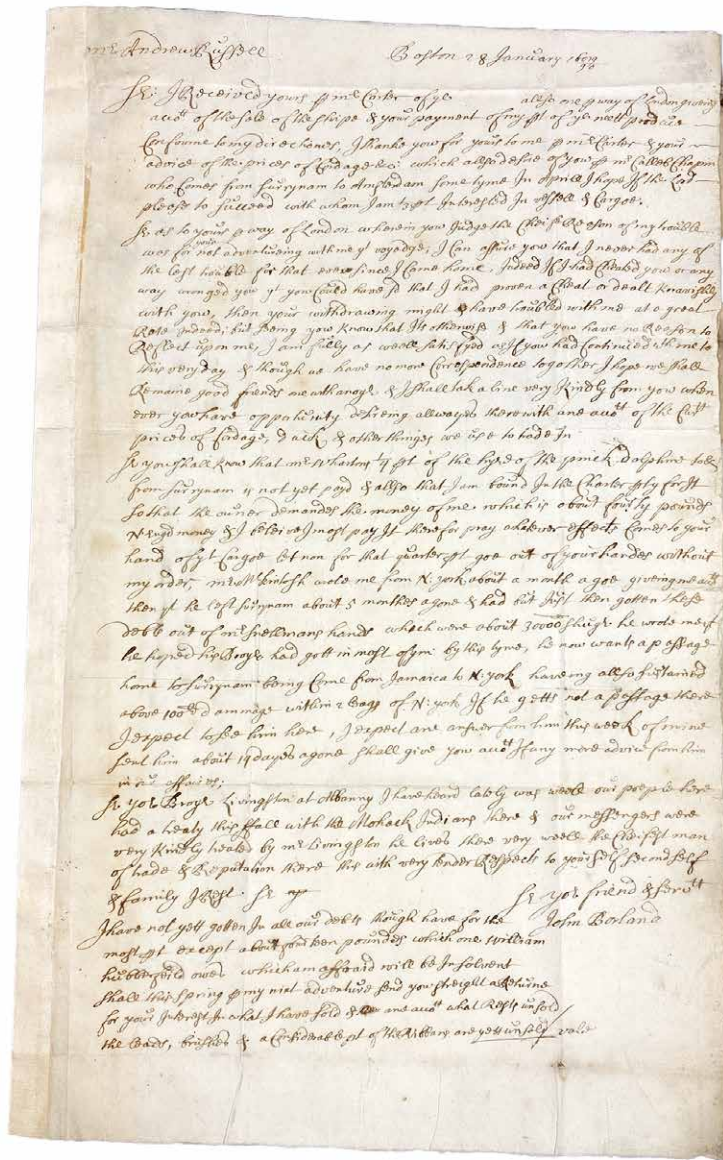 Mr Andrew Russell Boston 28 January
Sr: I Received yours pr mr Carter of ye allso one p way of London giveing
autt of the sale of the shipe & your payment of my pt of ye nett produce
Conforme to my directiones, I thanke you for yours to me p mr Carter & your
advice of the prices of Cordage &c: which allso desire of you pr mr Calleb Chapin
who Comes from Surrynam to Amsterdam some tyme In Aprile I hope If the Lord
please to succeed with whom I am pt Interested In vessell & Cargoe:
Sr as to yours p way of London wherein you Judge the Cheife Reason of my trouble
was for your not adventureing with me yt voyadge; I can assure you that I never had any of
the lest trouble for that ever since I came home, Indeed If I had Cheated you or any
way wronged you yt you Could have sd that I had proven a Cheat or dealt knavishly
with you, then your withdrawing might have troubled with me at a great
Rate Indeed; but Being you know that Its otherwise & that you have no Reason to
Reflect upon me, I am fully as weell satisfyed as If you had Continued with me to
this very day & though we have no more Correspondence together I hope we shall
Remaine good friends & I shall tak a line very kindly from you when
ever you have oppertunity desireing allwayes therewith ane autt of the Curtt
prices of Cordage, duck & other thinges we use to trade In
Sr you shall know that mr Whartons 1/4 pt of the hyre of the pinck Dolphine to
from Surrynam is not yet payd & allso that I am bound In the Charter pty for It
so that the owner demandes the money of me which is about fourty pounds
N: Engd money & I beleive I most pay It therfor pray whatever effects Comes to your
hand of yt Cargoe let non for that quarter pt goe out of your handes without
my order, mr Mckintosh wrote me from N: york about a month agoe giveing me autt
then yt he left Surynam about 5 monthes agone & had but Just then gotten these
debts out of mr Snellmans hands which were about 30000 he wrote me yt
he hoped his Broyr had gott in most of ym by this tyme, he now wants a passage
home to Surrynam being Come from Jamaica to N: york haveing allso sustained
above 100 damage within 2 leags of N: york If he getts not a passage there
I expect to see him here, I expect ane answer from him this week of mine
sent him about 14 dayes agone shall give you autt If any more advice from him
in affaires;
Sr yor Broyr Livingston at Albanny I have heard lately was weele our people here
had a treaty this ffall with the Mohack Indians there & our messengers were
very kindly treated by mr Livingston he lives there very weell the Cheifest man
of trade & Reputation there this with very tender Respects to yourself second self
& family I Rest: Sr Sr yor friend & servtt
I have not yett gotten In all our debts though have for the John Borland
most pt except about fourteen poundes which one William
owes which am affraid will be Insolvent
shall this spring p my nixt adventure send you streight a Returne
for your Interest In what I have sold & ane autt what Rests unsold
the leads, brushes & a Considerable pt of the Ribbans are yett unsold